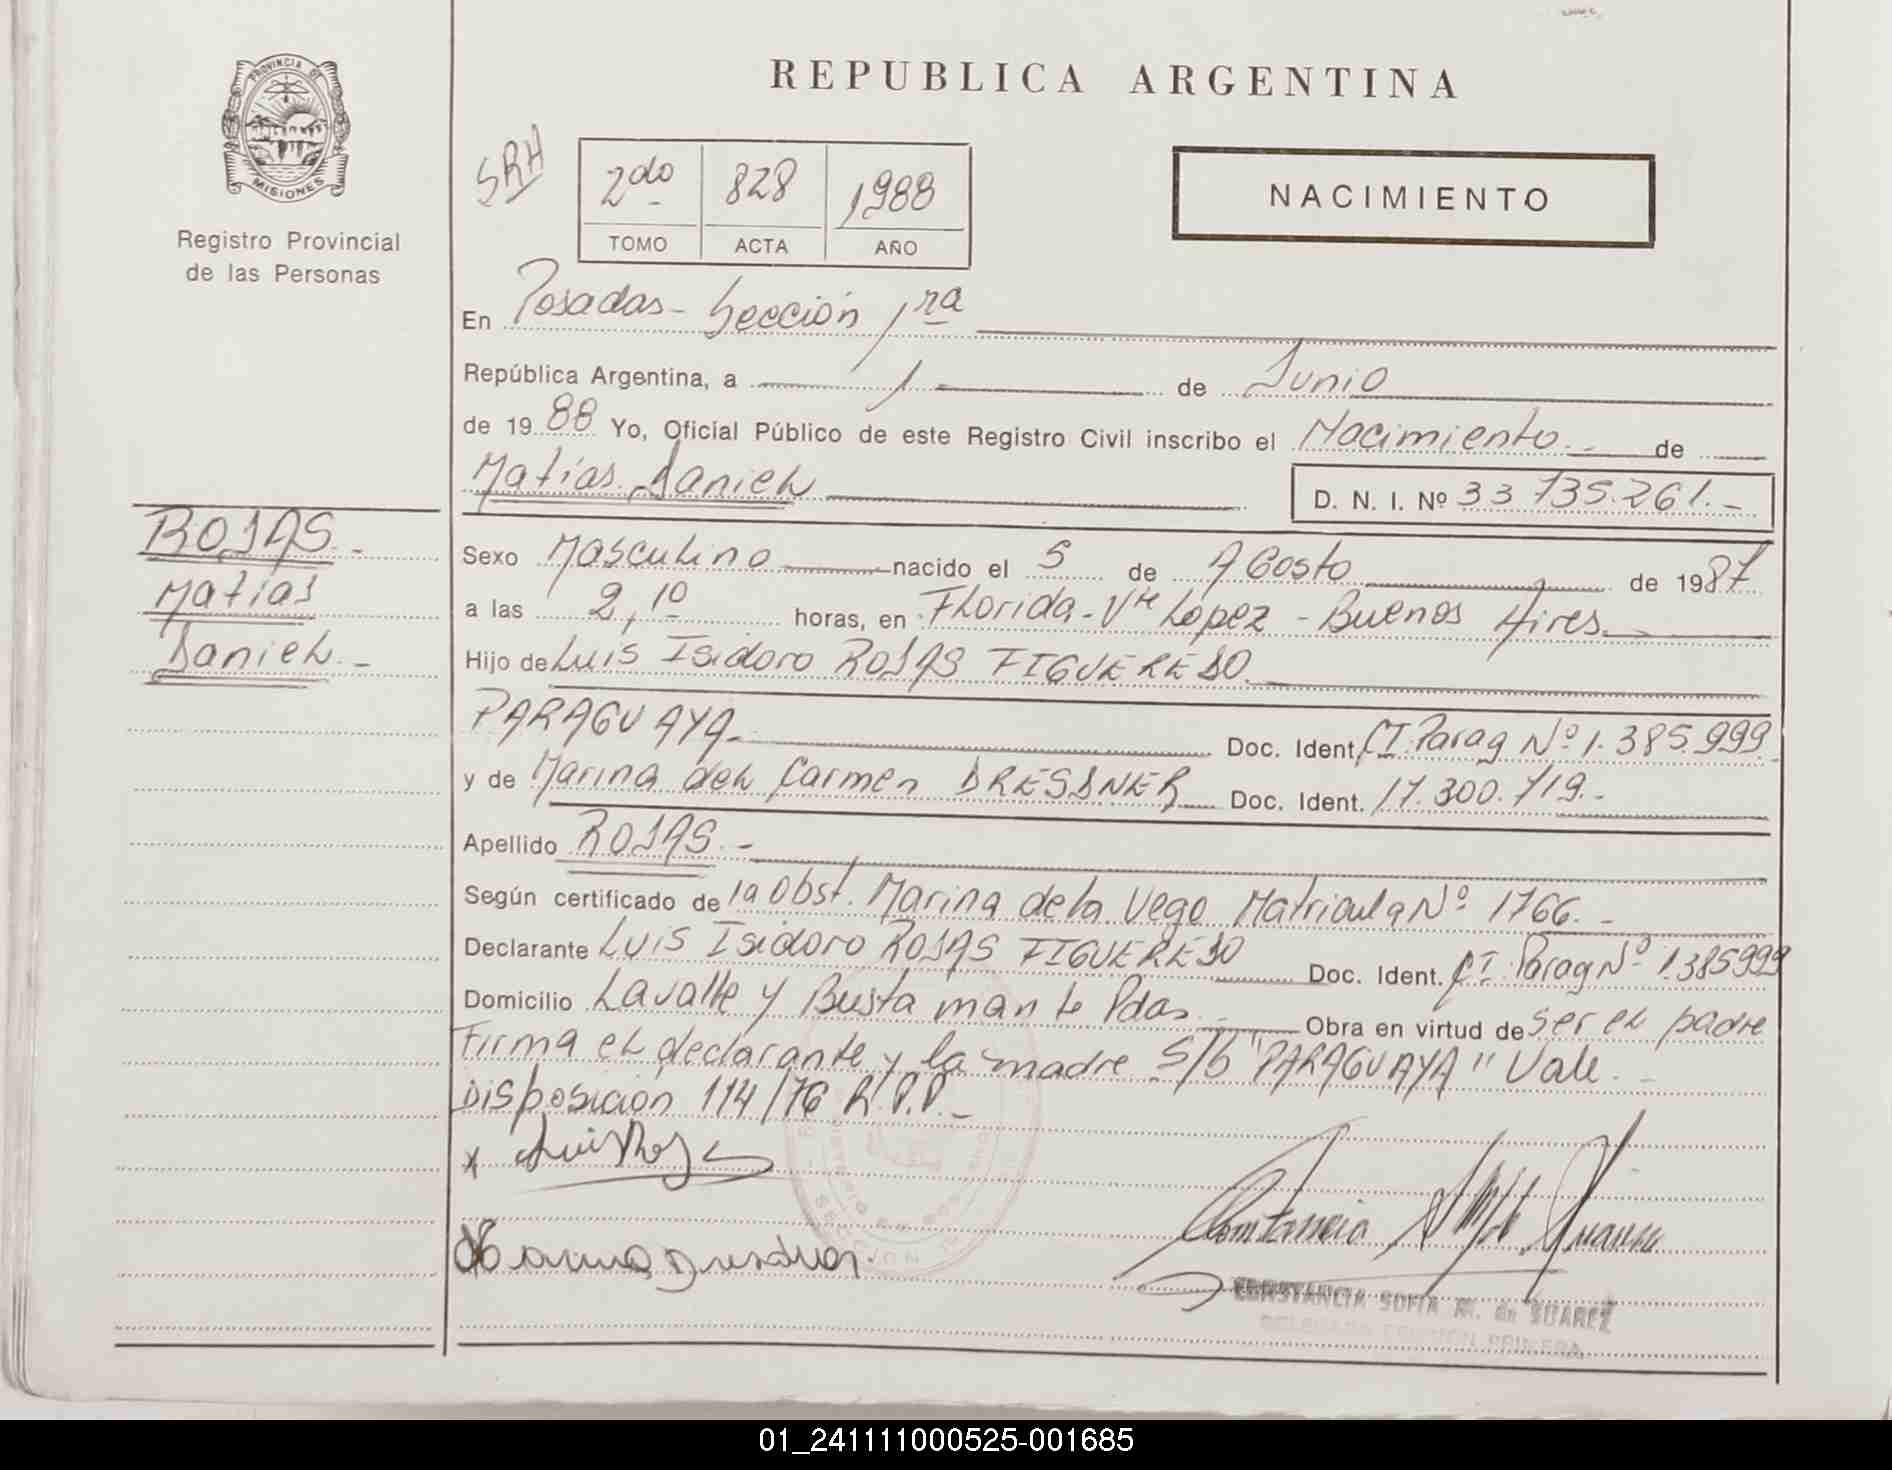 PROVINCIA DE
MISIONES
Registro Provincial
de las Personas
REPUBLICA ARGENTINA
SRH
2do 828 1988
TOMO ACTA AÑO
NACIMIENTO
En Posadas - Sección 1ra
República Argentina, a 1 de Junio
de 1988 Yo, Oficial Público de este Registro Civil inscribo el Nacimiento de
Matías Daniel
D. N. I. Nº 33.735.261.-
ROJAS.-
Matías
Daniel.-
Sexo Masculino nacido el 5 de Agosto de 1987
a las 2,10 horas, en Florida - Vte López - Buenos Aires.
Hijo de Luis Isidoro ROJAS FIGUEREDO
PARAGUAYA. Doc. Ident. CI. Parag Nº 1.385.999
y de Marina del Carmen DRESSNER Doc. Ident. 17.300.719.-
Apellido ROJAS.-
Según certificado de la Obst. Marina de la Vega Matricula Nº 1766.-
Declarante Luis Isidoro ROJAS FIGUEREDO Doc. Ident. CI. Parag Nº 1.385999
Domicilio Lavalle y Bustamante Pdas.- Obra en virtud de ser el padre
Firma el declarante y la madre S/b "PARAGUAYA" Vale.-
Disposición 114/76 R.P.P.-
x Luis Rojas
Constancia Suarez
CONSTANCIA SOFIA M. de SUAREZ
DELEGADA SECCION PRIMERA
01_241111000525-001685